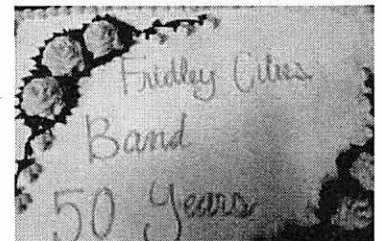 Fridley Cities
Band
50 Years